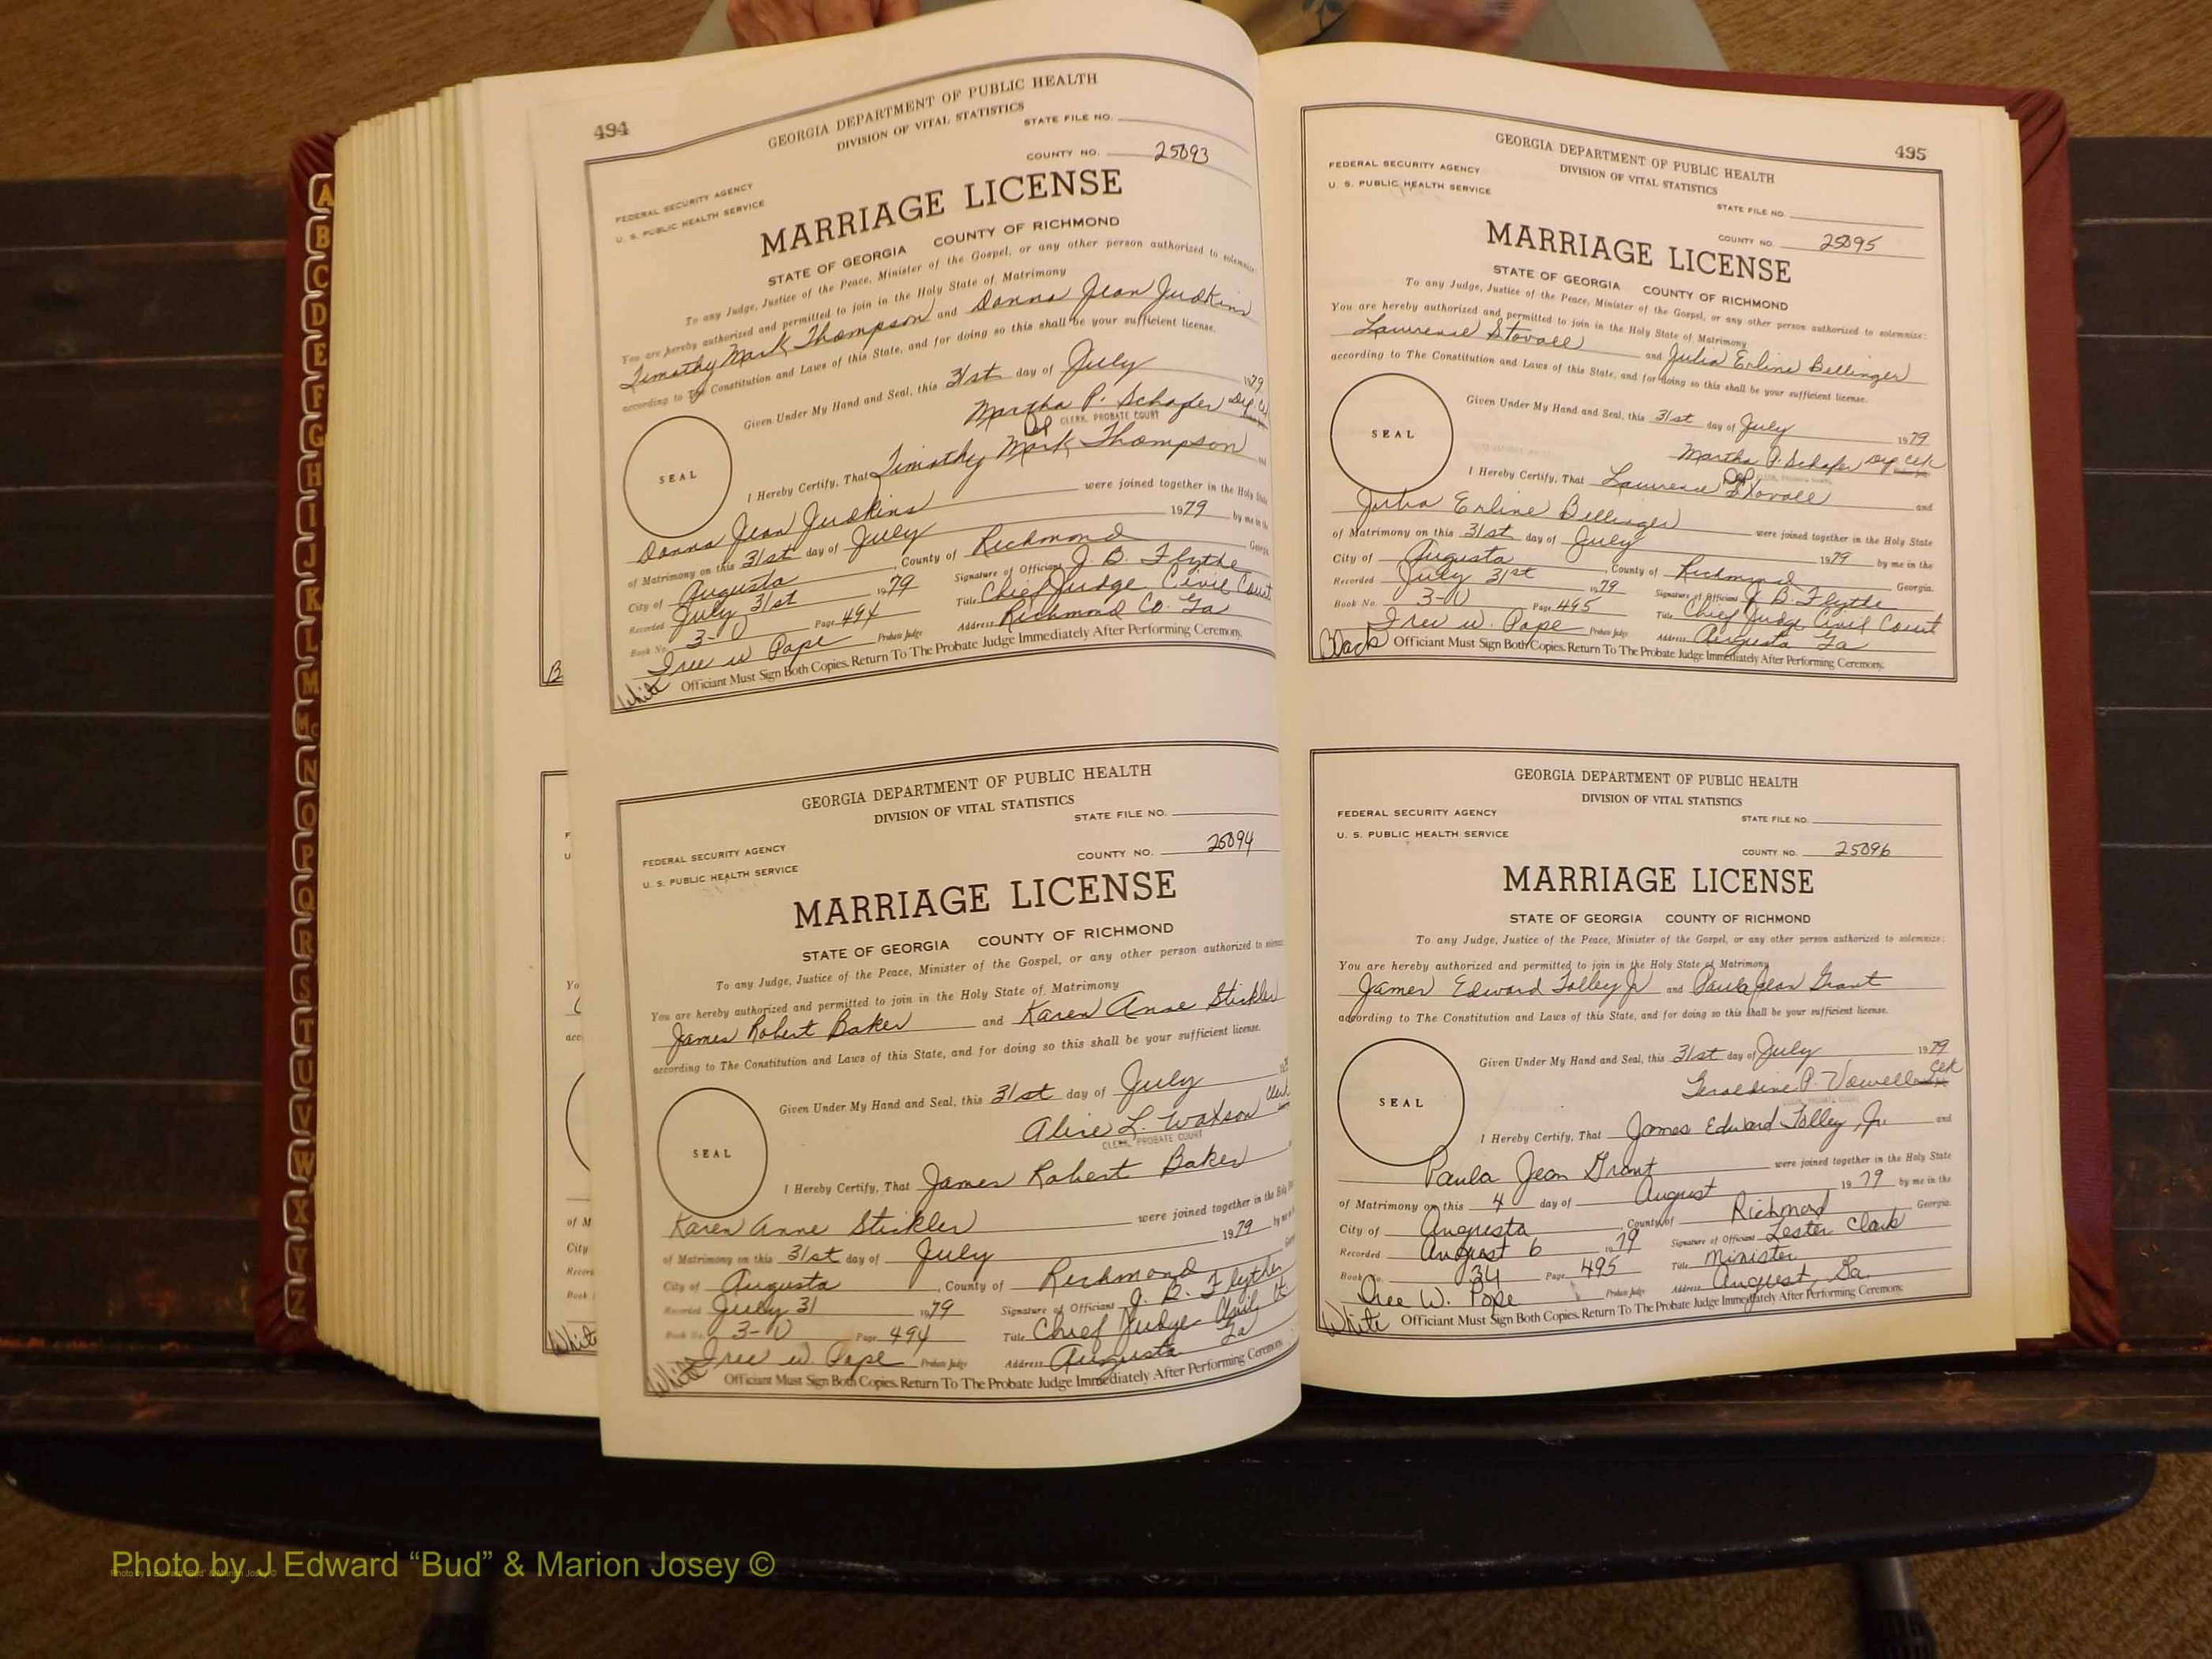 494
GEORGIA DEPARTMENT OF PUBLIC HEALTH
DIVISION OF VITAL STATISTICS
STATE FILE NO.
COUNTY NO. 25093
FEDERAL SECURITY AGENCY
U. S. PUBLIC HEALTH SERVICE
MARRIAGE LICENSE
STATE OF GEORGIA COUNTY OF RICHMOND
To any Judge, Justice of the Peace, Minister of the Gospel, or any other person authorized to solemnize:
You are hereby authorized and permitted to join in the Holy State of Matrimony
Timothy Mark Thompson and Donna Jean Judkins
according to The Constitution and Laws of this State, and for doing so this shall be your sufficient license.
Given Under My Hand and Seal, this 31st day of July 1979
Martha P. Schafer Dep. Clk
CLERK, PROBATE COURT
SEAL
I Hereby Certify, That Timothy Mark Thompson and
Donna Jean Judkins were joined together in the Holy State
of Matrimony on this 31st day of July 1979 by me in the
City of Augusta, County of Richmond Georgia
Recorded July 31st 1979 Signature of Officiant J. B. Flythe
Book No. 3-U Page 494 Title Chief Judge Civil Court
Iree W Pape Probate Judge Address Richmond Co. Ga
White Officiant Must Sign Both Copies. Return To The Probate Judge Immediately After Performing Ceremony.
GEORGIA DEPARTMENT OF PUBLIC HEALTH
DIVISION OF VITAL STATISTICS
STATE FILE NO.
COUNTY NO. 25094
FEDERAL SECURITY AGENCY
U. S. PUBLIC HEALTH SERVICE
MARRIAGE LICENSE
STATE OF GEORGIA COUNTY OF RICHMOND
To any Judge, Justice of the Peace, Minister of the Gospel, or any other person authorized to
You are hereby authorized and permitted to join in the Holy State of Matrimony
James Robert Baker and Karen Anne Stickler
according to The Constitution and Laws of this State, and for doing so this shall be your sufficient license.
Given Under My Hand and Seal, this 31st day of July
Alice L. Watson Clerk
CLERK, PROBATE COURT
SEAL
I Hereby Certify, That James Robert Baker
Karen Anne Stickler were joined together in the Holy
of Matrimony on this 31st day of July 1979 by me
City of Augusta, County of Richmond
Recorded July 31 1979 Signature of Officiant J. B. Flythe
Book No. 3-U Page 494 Title Chief Judge Civil Ct
Iree W. Pape Probate Judge Address Augusta Ga
White Officiant Must Sign Both Copies. Return To The Probate Judge Immediately After Performing Ceremony.
495
GEORGIA DEPARTMENT OF PUBLIC HEALTH
DIVISION OF VITAL STATISTICS
FEDERAL SECURITY AGENCY
U. S. PUBLIC HEALTH SERVICE
STATE FILE NO.
COUNTY NO. 25095
MARRIAGE LICENSE
STATE OF GEORGIA COUNTY OF RICHMOND
To any Judge, Justice of the Peace, Minister of the Gospel, or any other person authorized to solemnize:
You are hereby authorized and permitted to join in the Holy State of Matrimony
Lawrence Stovall and Julia Erline Bellinger
according to The Constitution and Laws of this State, and for doing so this shall be your sufficient license.
Given Under My Hand and Seal, this 31st day of July 1979
Martha P. Schafer Dep Clk
SEAL
I Hereby Certify, That Lawrence Stovall and
Julia Erline Bellinger were joined together in the Holy State
of Matrimony on this 31st day of July 1979 by me in the
City of Augusta, County of Richmond Georgia.
Recorded July 31st 1979 Signature of Officiant J. B. Flythe
Book No. 3-U Page 495 Title Chief Judge Civil Court
Iree W. Pape Probate Judge Address Augusta Ga
Black Officiant Must Sign Both Copies. Return To The Probate Judge Immediately After Performing Ceremony.
GEORGIA DEPARTMENT OF PUBLIC HEALTH
DIVISION OF VITAL STATISTICS
FEDERAL SECURITY AGENCY
STATE FILE NO.
U. S. PUBLIC HEALTH SERVICE
COUNTY NO. 25096
MARRIAGE LICENSE
STATE OF GEORGIA COUNTY OF RICHMOND
To any Judge, Justice of the Peace, Minister of the Gospel, or any other person authorized to solemnize:
You are hereby authorized and permitted to join in the Holy State of Matrimony
James Edward Tolley Jr and Paula Jean Grant
according to The Constitution and Laws of this State, and for doing so this shall be your sufficient license.
Given Under My Hand and Seal, this 31st day of July 1979
Geraldine P. Vowell Clk
CLERK, PROBATE COURT
SEAL
I Hereby Certify, That James Edward Tolley, Jr. and
Paula Jean Grant were joined together in the Holy State
of Matrimony on this 4 day of August 1979 by me in the
City of Augusta, County of Richmond Georgia.
Recorded August 6 1979 Signature of Officiant Lester Clark
Book No. 3U Page 495 Title Minister
Iree W. Pope Probate Judge Address August, Ga.
White Officiant Must Sign Both Copies. Return To The Probate Judge Immediately After Performing Ceremony.
A
B
C
D
E
F
G
H
I
J
K
L
M
Mc
N
O
P
Q
R
S
T
U
V
W
X
Y
Z
Photo by J Edward “Bud” & Marion Josey ©